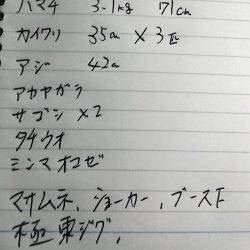 ハマチ 3.1kg 71cm
カイワリ 35cm × 3匹
アジ 42cm
アカヤガラ
サゴシ×2
タチウオ
ミシマオコゼ
マサムネ、ジョーカー、ブースト
極東ジグ、